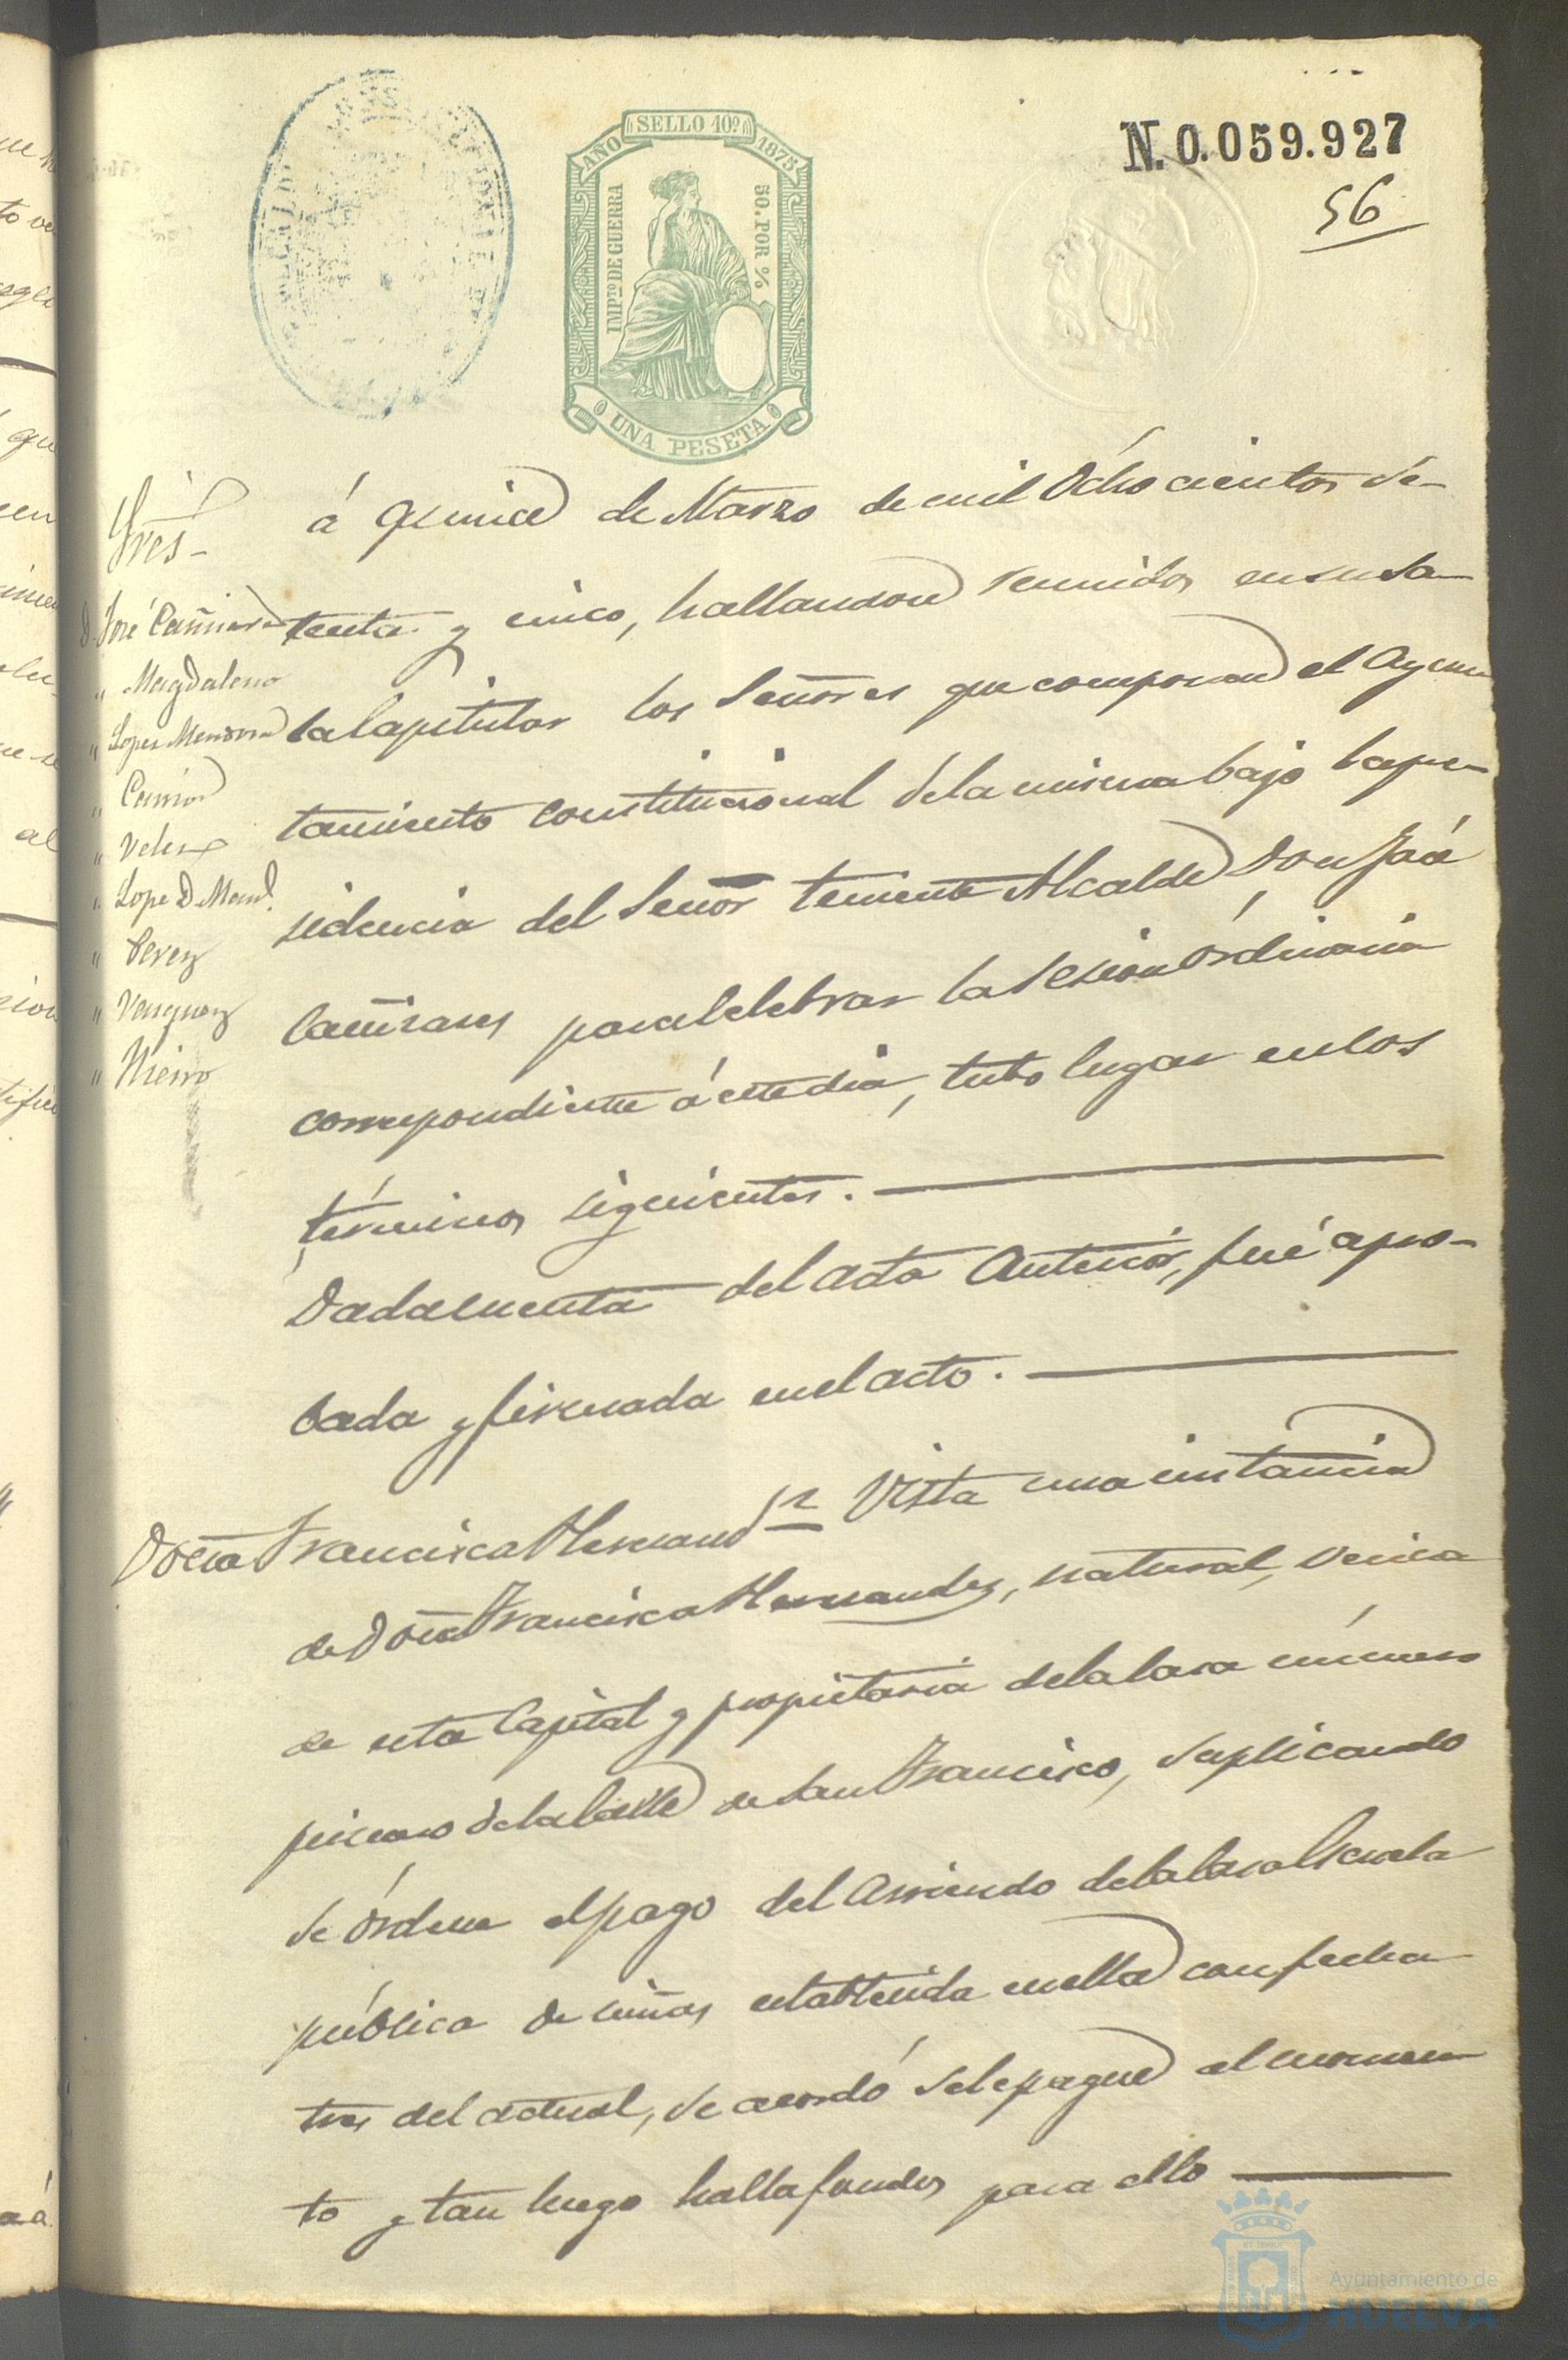 N. 0.059.927
56
SELLO 10º
AÑO 1875
IMP.TO DE GUERRA
50. POR %
UNA PESETA
Sres-
D. José Cañizares
" Magdaleno
" Lopez Mendoza
" Carrion
" Velez
" Lope D Mend.
" Perez
" Vazquez
" Nieiro
á quince de Marzo de mil Ochocientos se-
tenta y cinco, hallandose reunidos en su Sa-
la Capitular los Señores que componen el Ayun-
tamiento constitucional de la misma bajo la pre-
sidencia del Señor teniente Alcalde Don José
Cañizares para celebrar la sesion Ordinaria
correspondiente á este dia, tubo lugar en los
términos siguientes.
Dada cuenta del acta Anterior, fué apro-
bada y firmada en el acto.
Doña Francisca Hernandz Vista una instancia
de Doña Francisca Hernandez, natural, vecina
de esta Capital y propietaria de la Casa número
primero de la Calle de San Francisco, suplicando
se órdene el pago del Arriendo de la Casa Escuela
pública de niñas establecida en ella con fecha
tres del actual, se acordó se le pague al momen-
to y tan luego halla fondos para ello
Ayuntamiento de
HUELVA